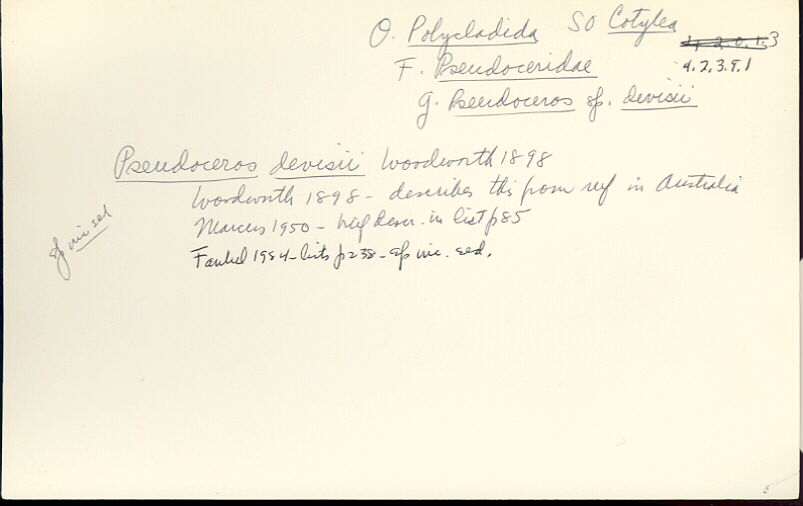 O. Polycladida SO Cotylea
4.2.0.1.3
F. Pseudoceridae 4.2.3.9.1
g. Pseudoceros sp. devisii
Pseudoceros devisii Woodworth 1898
Woodworth 1898 - describes this from reef in Australia
Marcus 1950 - brief descr. in list p85
Faubel 1984 - lists p238 - sp inc. sed.
sp inc sed